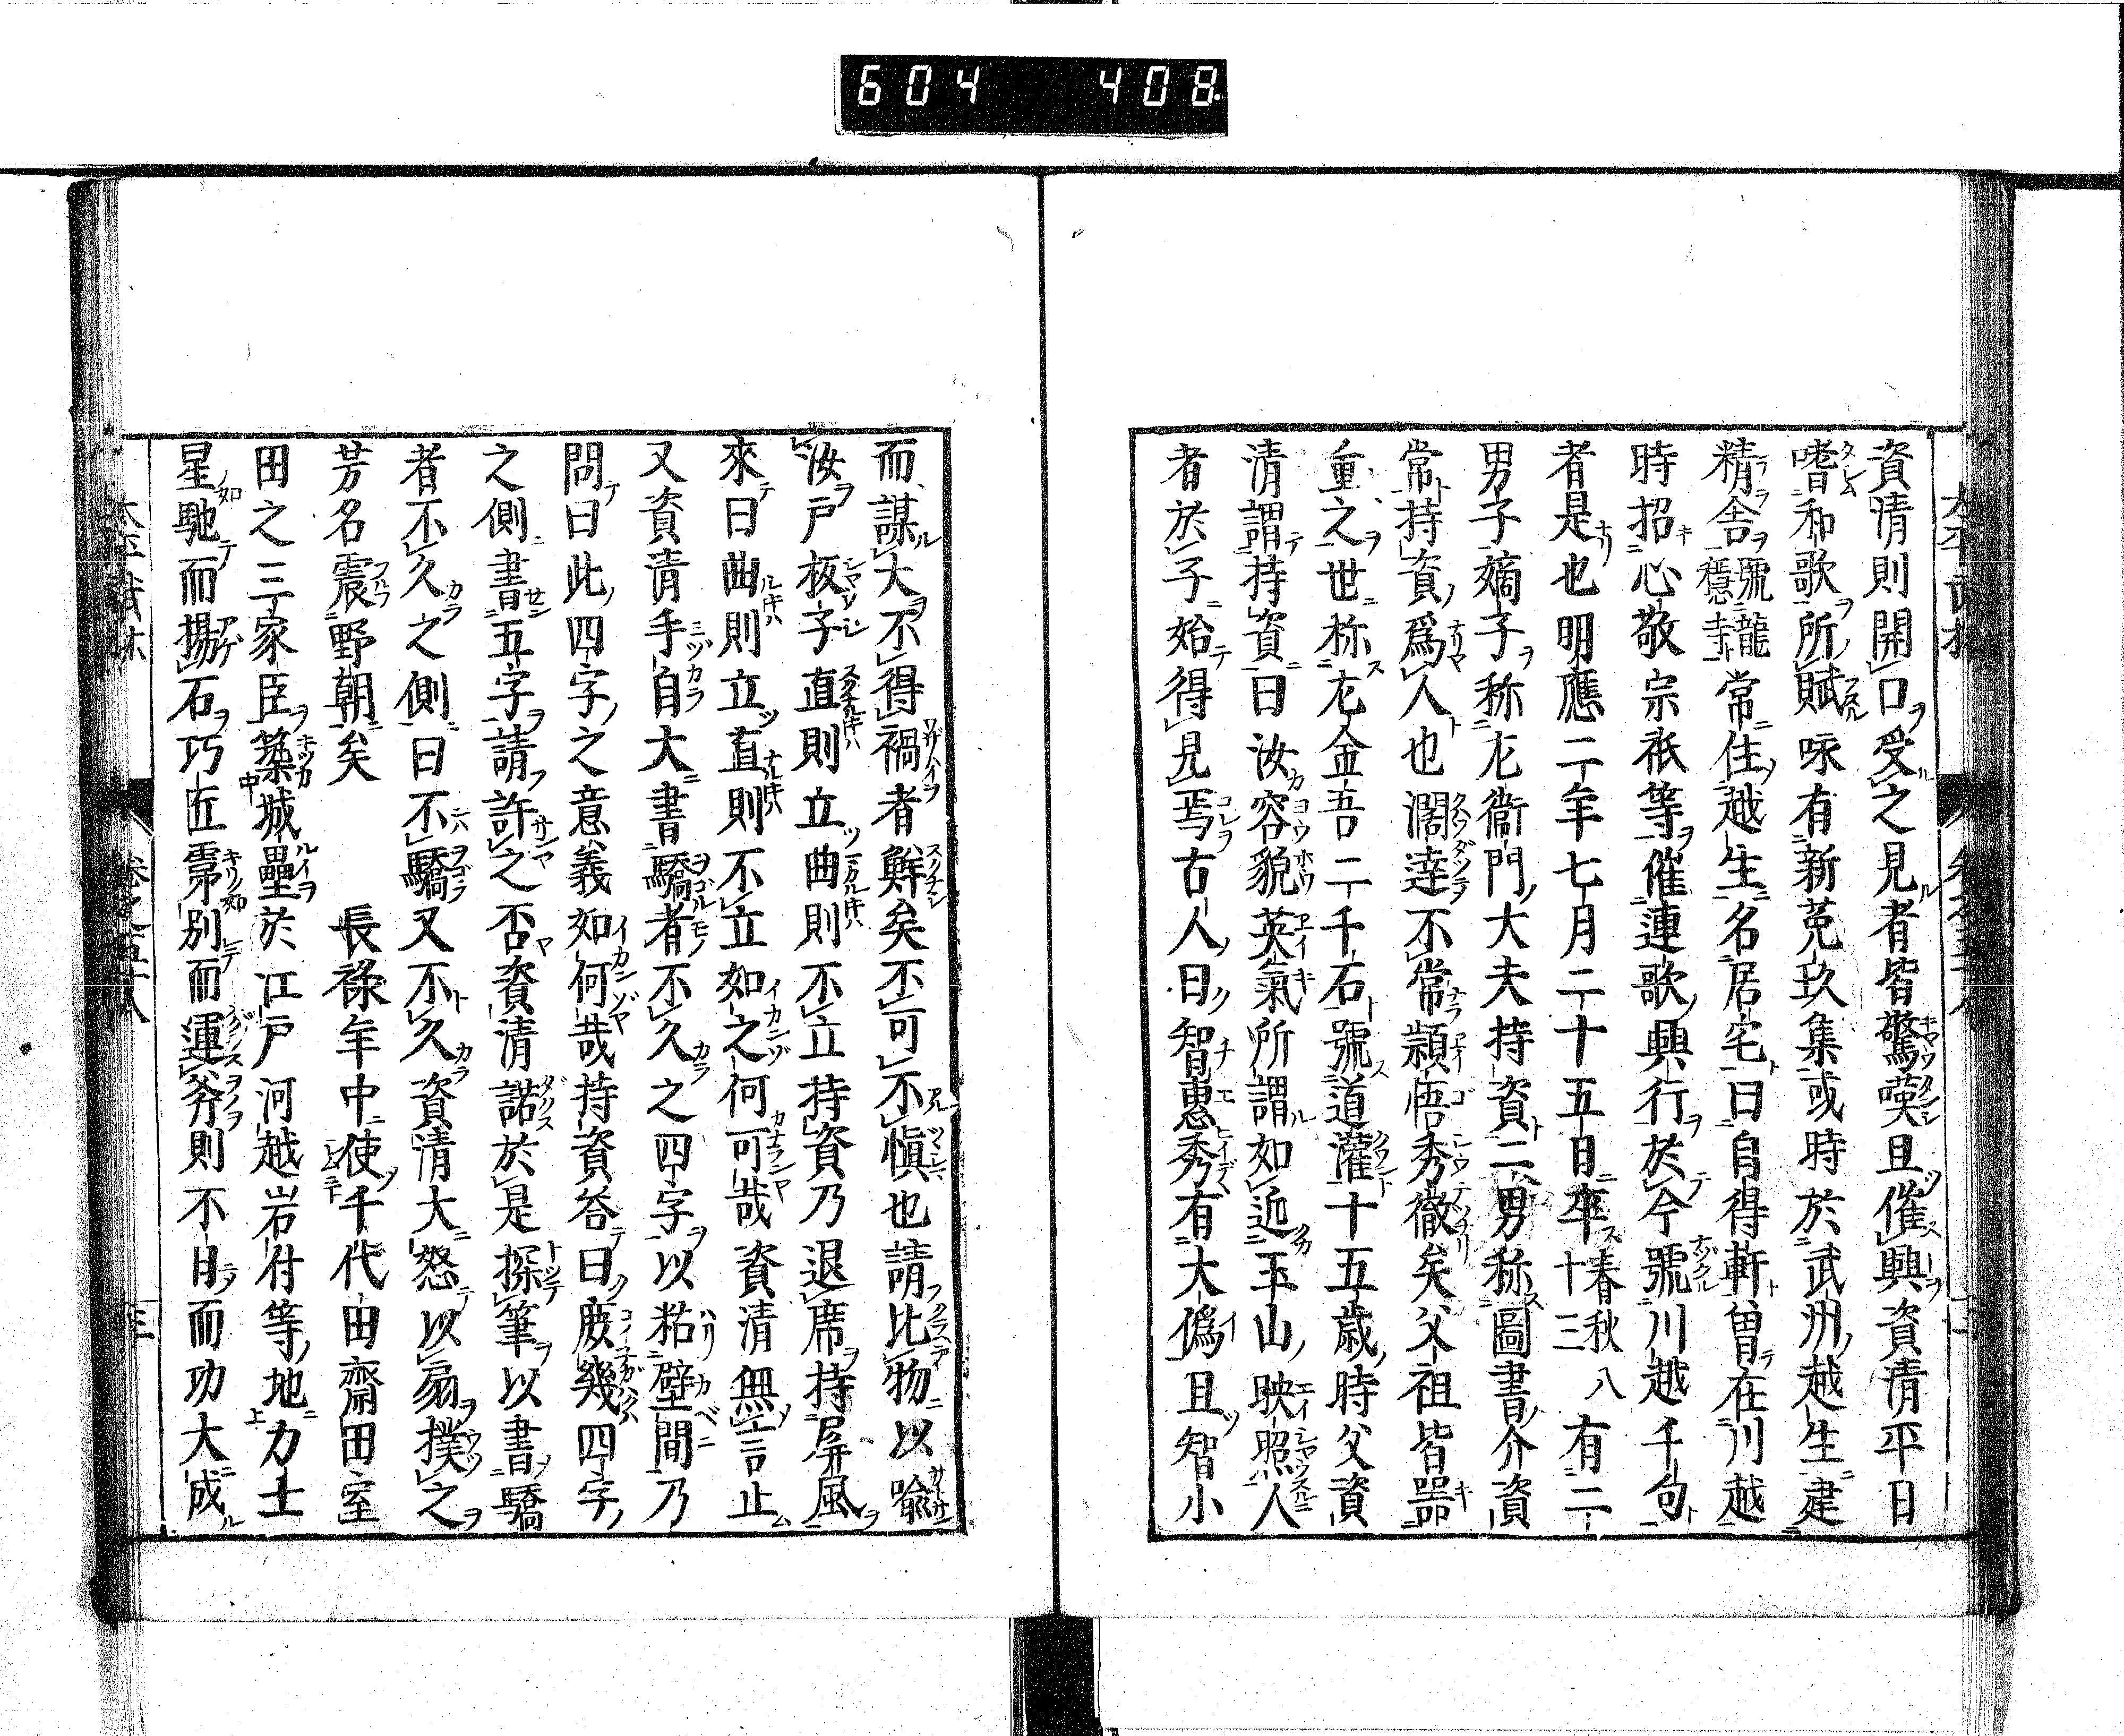 604 408
資清則開口受之見者皆驚嘆且催興資清平日
嗜和歌所賦咏有新菟玖集或時於武州越生建
精舍號龍穩寺常住越生名居宅曰自得軒曽在川越
時招心敬宗祇等催連歌興行於今號川越千句
者是也明應二年七月二十五日卒春秋八十三有二
男子嫡子称左衞門大夫持資二男称圖書介資
常持資爲人也濶達不常穎悟秀徹矣父祖皆器
重之世称左金吾二千石號道灌十五歲時父資
清謂持資曰汝容貌英氣所謂如近玉山映照人
者於子始得見焉古人曰智惠秀有大僞且智小
而謀大不得禍者鮮矣不可不愼也請比物以喩
汝戸板子直則立曲則不立持資乃退席持屏風
來曰曲則立直則不立如之何可哉資清無言止
又資清手自大書驕者不久之四字以粘壁間乃
問曰此四字之意義如何哉持資答曰庶幾四字
之側書五字請許之否資清諾於是探筆以書驕
者不久之側曰不驕又不久資清大怒以扇撲之
芳名震野朝矣 長祿年中使千代田齋田室
田之三家臣築城壘於江戸河越岩付等地力士
星馳而揚石巧匠霧別而運斧則不日而功大成